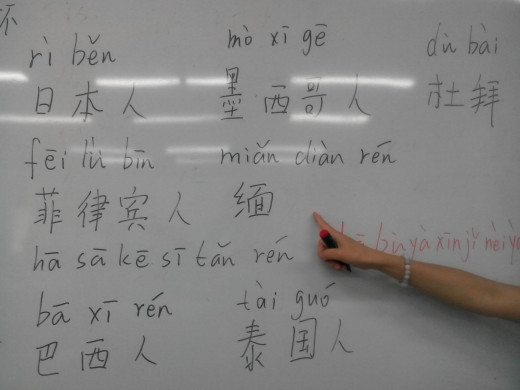 rì běn mò xī gē dù bài
日本人 墨西哥人 杜拜
fēi lǜ bīn miǎn diàn rén
菲律宾人 缅
bùyàxīnjǐnèi
hā sā kē sī tǎn rén
bā xī rén tài guó
巴西人 泰国人